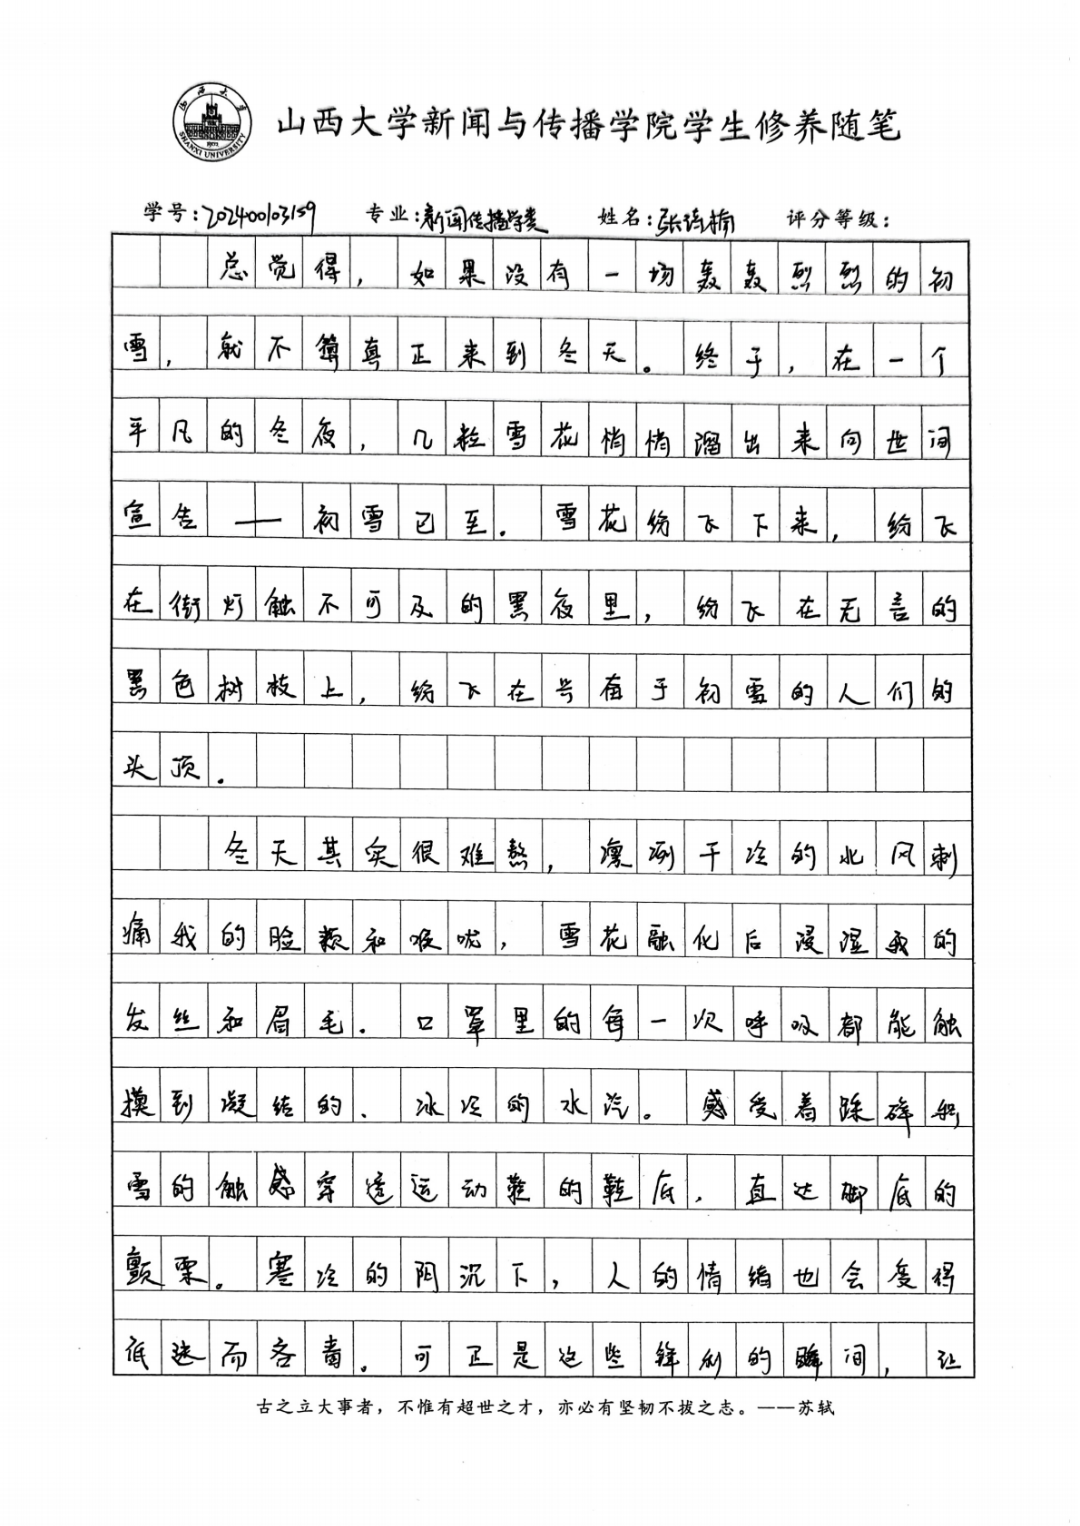 山西大学
SHANXI UNIVERSITY
1902
山西大学新闻与传播学院学生修养随笔
学号:202400103159 专业:新闻传播学类 姓名:张琦楠 评分等级:
总觉得，如果没有一场轰轰烈烈的初
雪，就不算真正来到冬天。终于，在一个
平凡的冬夜，几粒雪花悄悄溜出来向世间
宣告——初雪已至。雪花纷飞下来，纷飞
在街灯触不可及的黑夜里，纷飞在无言的
黑色树枝上，纷飞在每有于初雪的人们的
头顶。
冬天其实很难熬，凛冽干冷的北风刺
痛我的脸颊和喉咙，雪花融化后浸湿我的
发丝和眉毛。口罩里的每一次呼吸都能触
摸到凝结的、冰冷的水汽。感受着踩碎积
雪的触感穿透运动鞋的鞋底，直达脚底的
颤栗。寒冷的阴沉下，人的情绪也会变得
低迷而吝啬。可正是这些锋利的瞬间，让
古之立大事者，不惟有超世之才，亦必有坚韧不拔之志。——苏轼